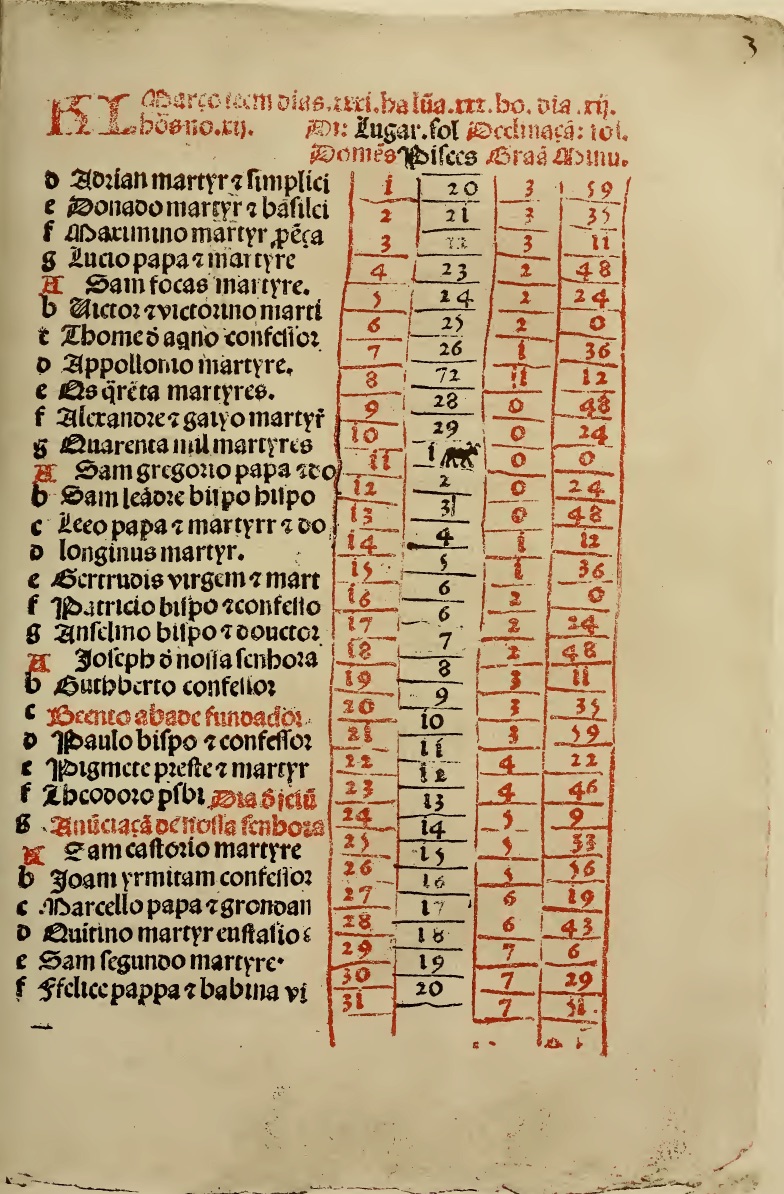 3
KL Março tem dias.xxxi.ha lũa.xxx.ho. dia .xij.
hõs no.xij. Di: Lugar.sol Declinaçã: sol.
Domẽs Pisces Graã Minu.
d Adrian martyr ⁊ simplici 1 20 3 59
e Donado martyr ⁊ basilci 2 21 3 35
f Maximino martyr 3 3 11
g Lucio papa ⁊ martyre 4 23 2 48
A Sam focas martyre. 5 24 2 24
b Victor ⁊ victorino marti 6 25 2 0
c Thome d̃ aqno confessor 7 26 1 36
d Appollonio martyre. 8 72 11 12
e Os q̃rẽta martyres. 9 28 0 48
f Alexandre ⁊ gaiyo martyr̃ 10 29 0 24
g Quarenta mil martyres 11 1 0 0
A Sam gregorio papa ⁊ do 12 2 0 24
b Sam leãdre bispo bispo 13 31 0 48
c Leeo papa ⁊ martyrr ⁊ do 14 4 1 12
d longinus martyr. 15 5 1 36
e Gertrudis virgem ⁊ mart 16 6 2 0
f Patricio bispo ⁊ confesso 17 6 2 24
g Anselmo bispo ⁊ douctor 18 7 2 48
A Joseph d̃ nossa senhora 19 8 3 11
b Guthberto confessor 20 9 3 35
c Beento abade fundador. 21 10 3 59
d Paulo bispo ⁊ confessor 22 11 4 22
e Pigmete preste ⁊ martyr 23 12 4 46
f Theodoro psbi Dia d̃ jejũ 24 13 5 9
g Anũciaçã de nossa senhora 25 14 5 33
A Sam castorio martyre 26 15 5 56
b Joam yrmitam confessor 27 16 6 19
c Marcello papa ⁊ grondan 28 17 6 43
d Quitino martyr eustasio 29 18 7 6
e Sam segundo martyre 30 19 7 29
f Ffelice pappa ⁊ babina vi 31 20 7 51